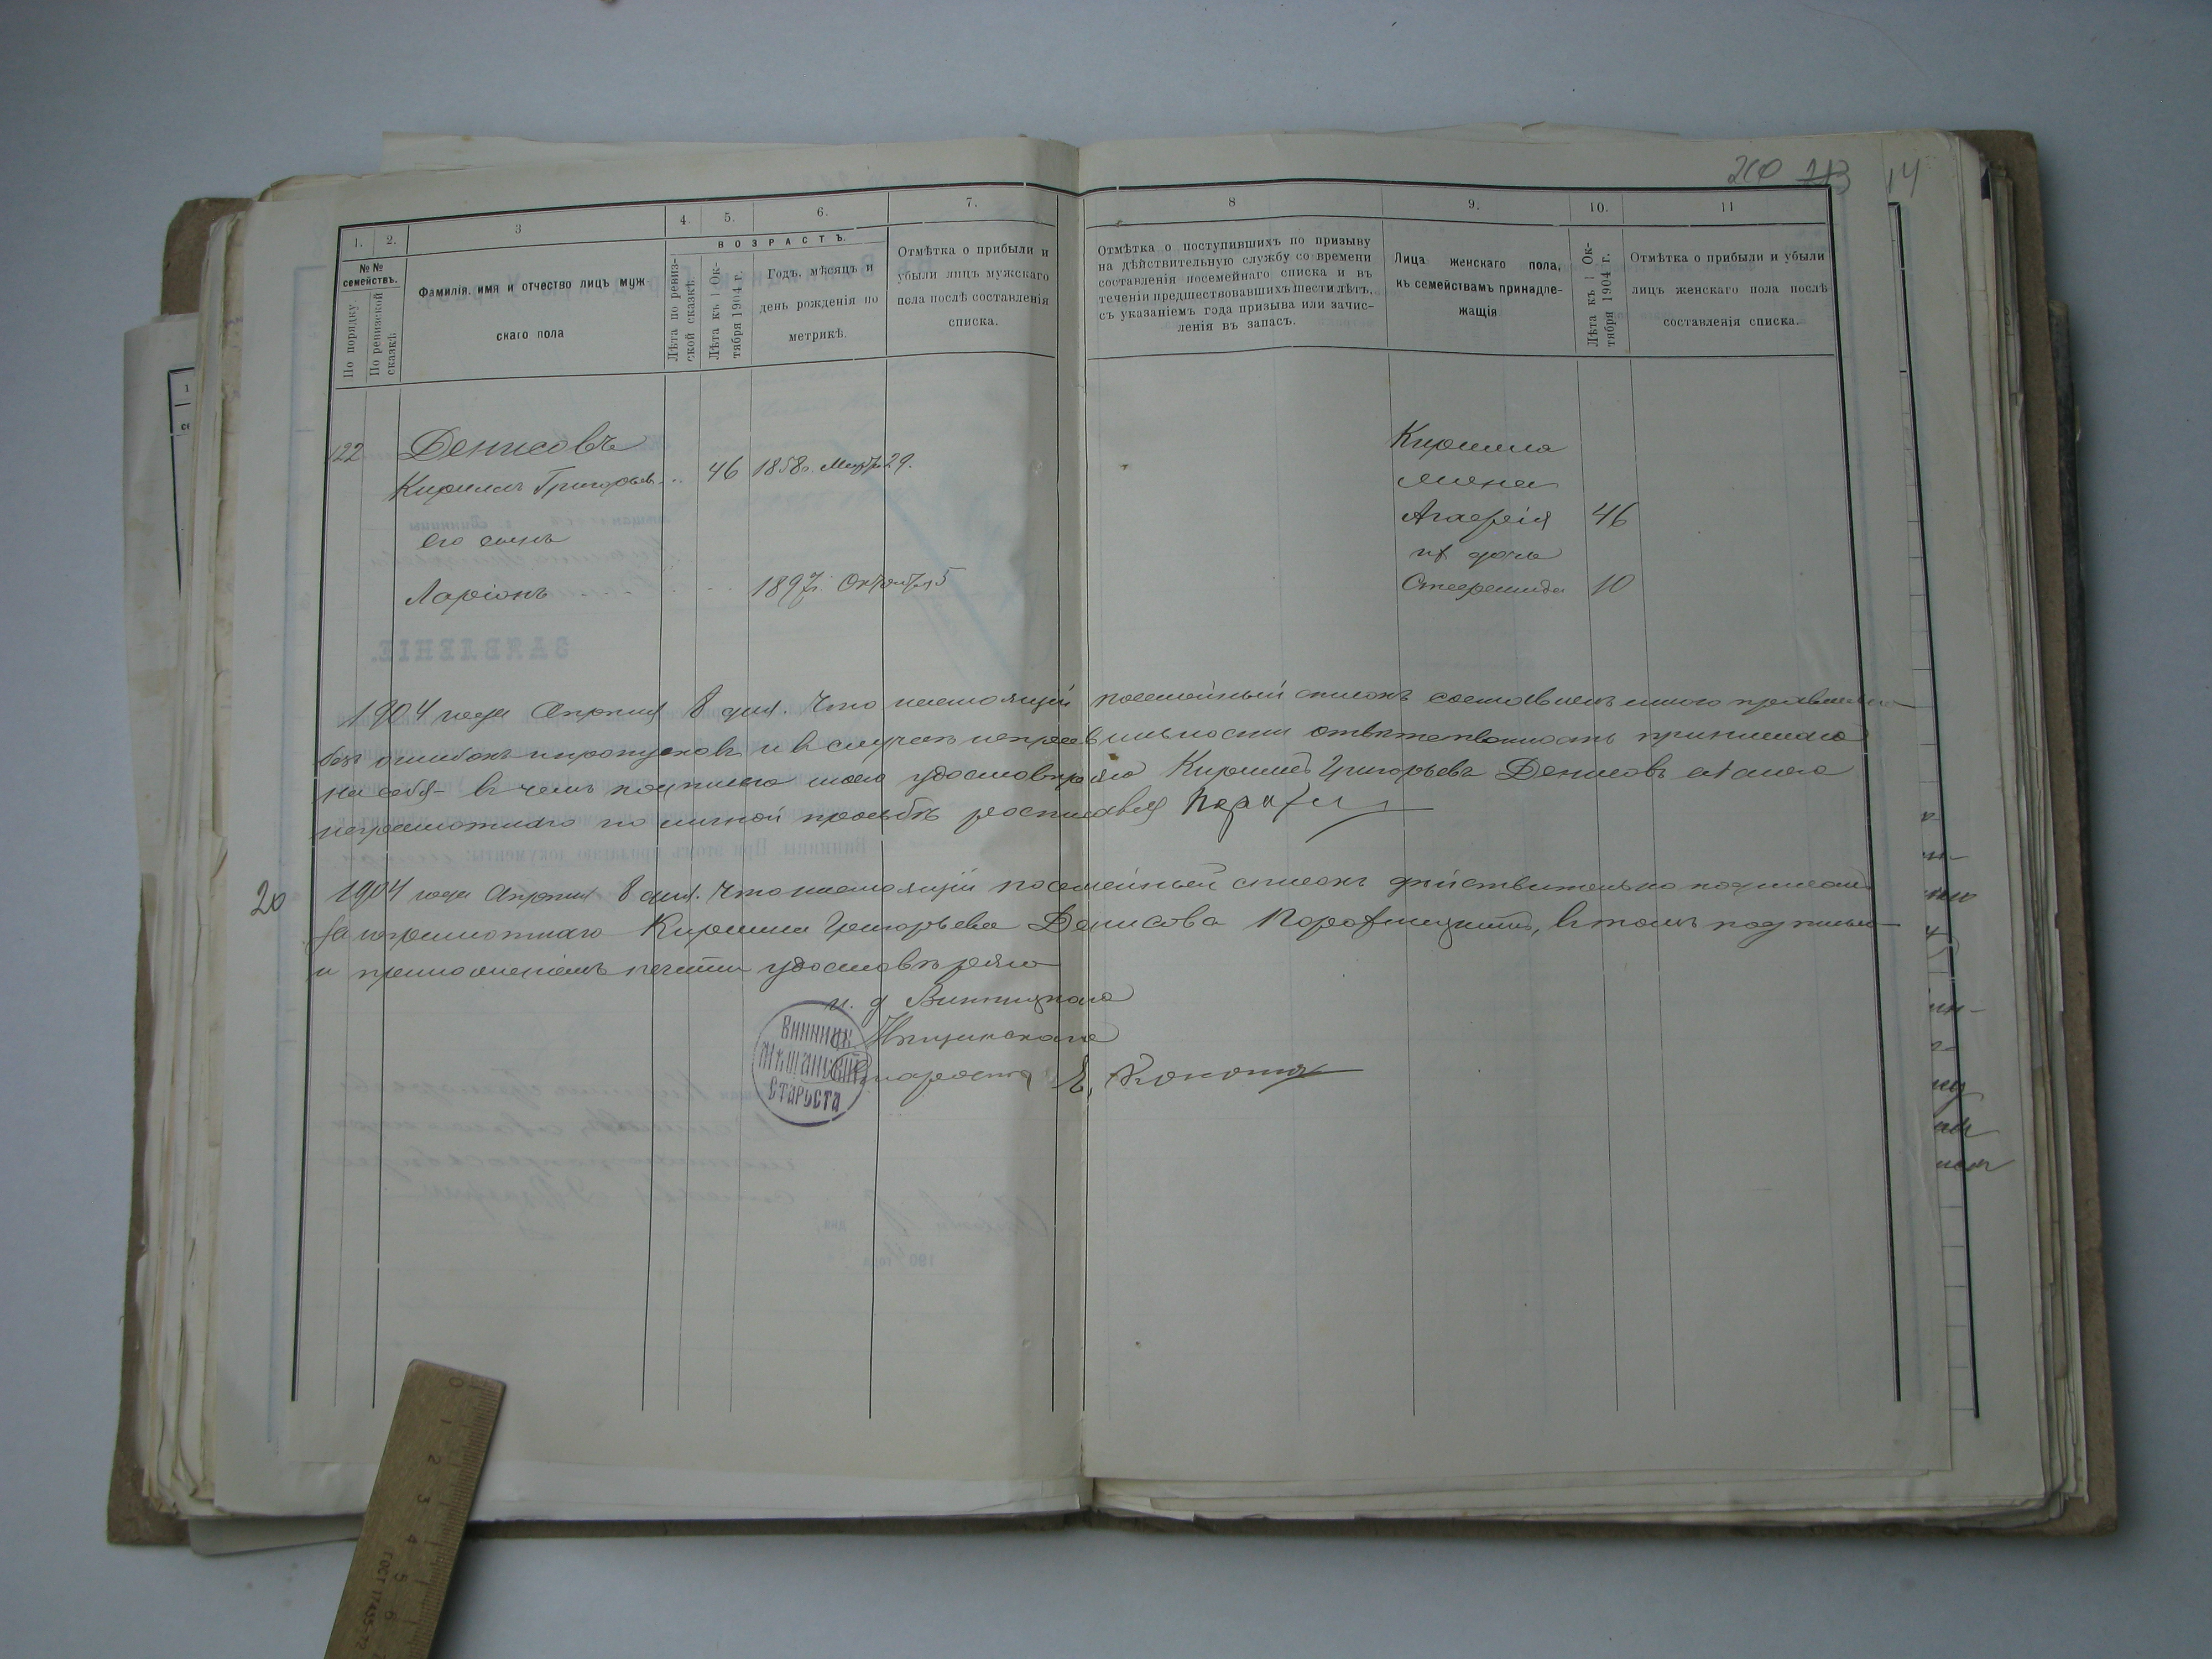 260 213
14
1.
2.
3
4.
5.
6.
7.
8
9.
10.
11
№№ семействъ.
По порядку.
По ревизской сказкѣ.
Фамилія, имя и отчество лицъ муж
скаго пола
ВОЗРАСТЪ.
Лѣта по ревиз-
ской сказкѣ.
Лѣта къ 1 Ок-
тября 1904 г.
Годъ, мѣсяцъ и
день рожденія по
метрикѣ.
Отмѣтка о прибыли и
убыли лицъ мужскаго
пола послѣ составленія
списка.
Отмѣтка о поступившихъ по призыву
на дѣйствительную службу со времени
составленія посемейнаго списка и въ
теченіи предшествовавшихъ шести лѣтъ,
съ указаніемъ года призыва или зачис-
ленія въ запасъ.
Лица женскаго пола,
къ семействамъ принадле-
жащія
Лѣта къ 1 Ок-
тября 1904 г.
Отмѣтка о прибыли и убыли
лицъ женскаго пола послѣ
составленія списка.
122 Денисовъ
Кирилъ Григорьев. 46 1858г. Марта 29.
его сынъ
Ларіонъ 1897г. Октября 5
Кирилла
жена
Агафія 46
их дочь
10
1904 года Апрѣля 8 дня. Что настоящій посемейный списокъ составленъ мною правильно
безъ ошибокъ и пропусковъ и в случаѣ неправильности отвѣтственность принимаю
на себя - в чемъ подписью моею удостовѣряю Кирилъ Григорьевъ Денисовъ а за него
неграмотнаго по личной просьбѣ росписался
20 1904 года Апрѣля 8 дня. Что настоящій посемейный списокъ дѣйствительно подписалъ
за неграмотнаго Кирилла Григорьева Денисова, в томъ подписью
и приложеніемъ печати удостовѣряю
и. д Винницкаго
Мѣщанскаго
Старосты
ВИННИЦК.
МѢЩАНСКІЙ
СТАРОСТА
ЗАЯВЛЕНІЕ.
0 1 2 3 4 5 6
ГОСТ 17435-72